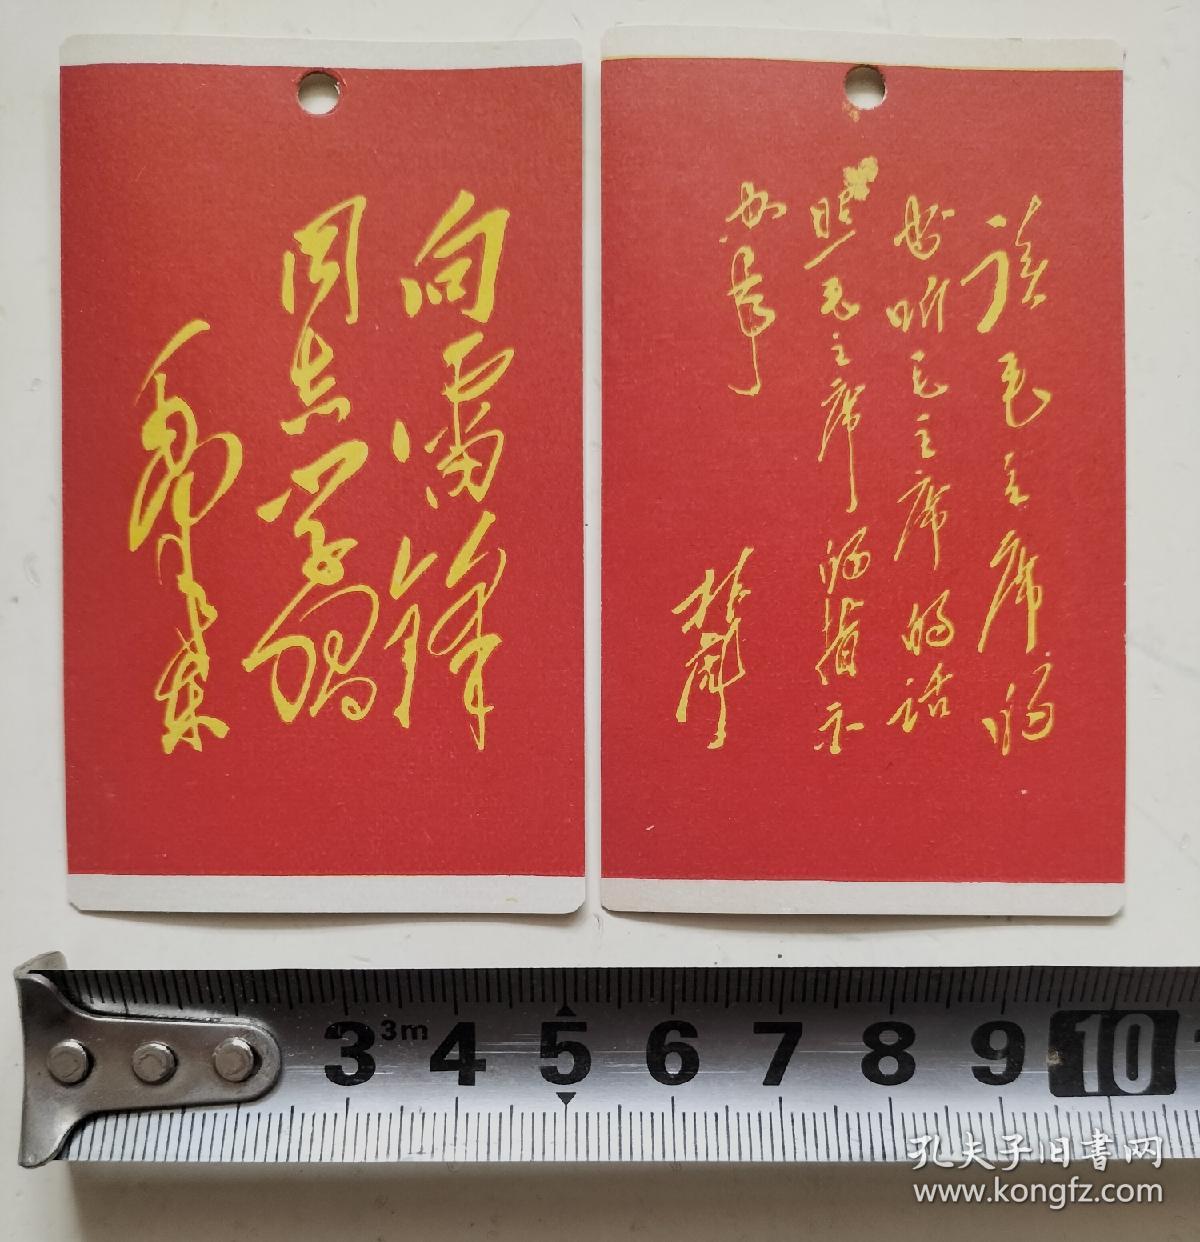 向雷锋
同志学习
毛泽东
读毛主席的
书听毛主席的话
照毛主席的指示
办事
林彪
3 3m 4 5 6 7 8 9 10 1
孔夫子旧書网
www.kongfz.com